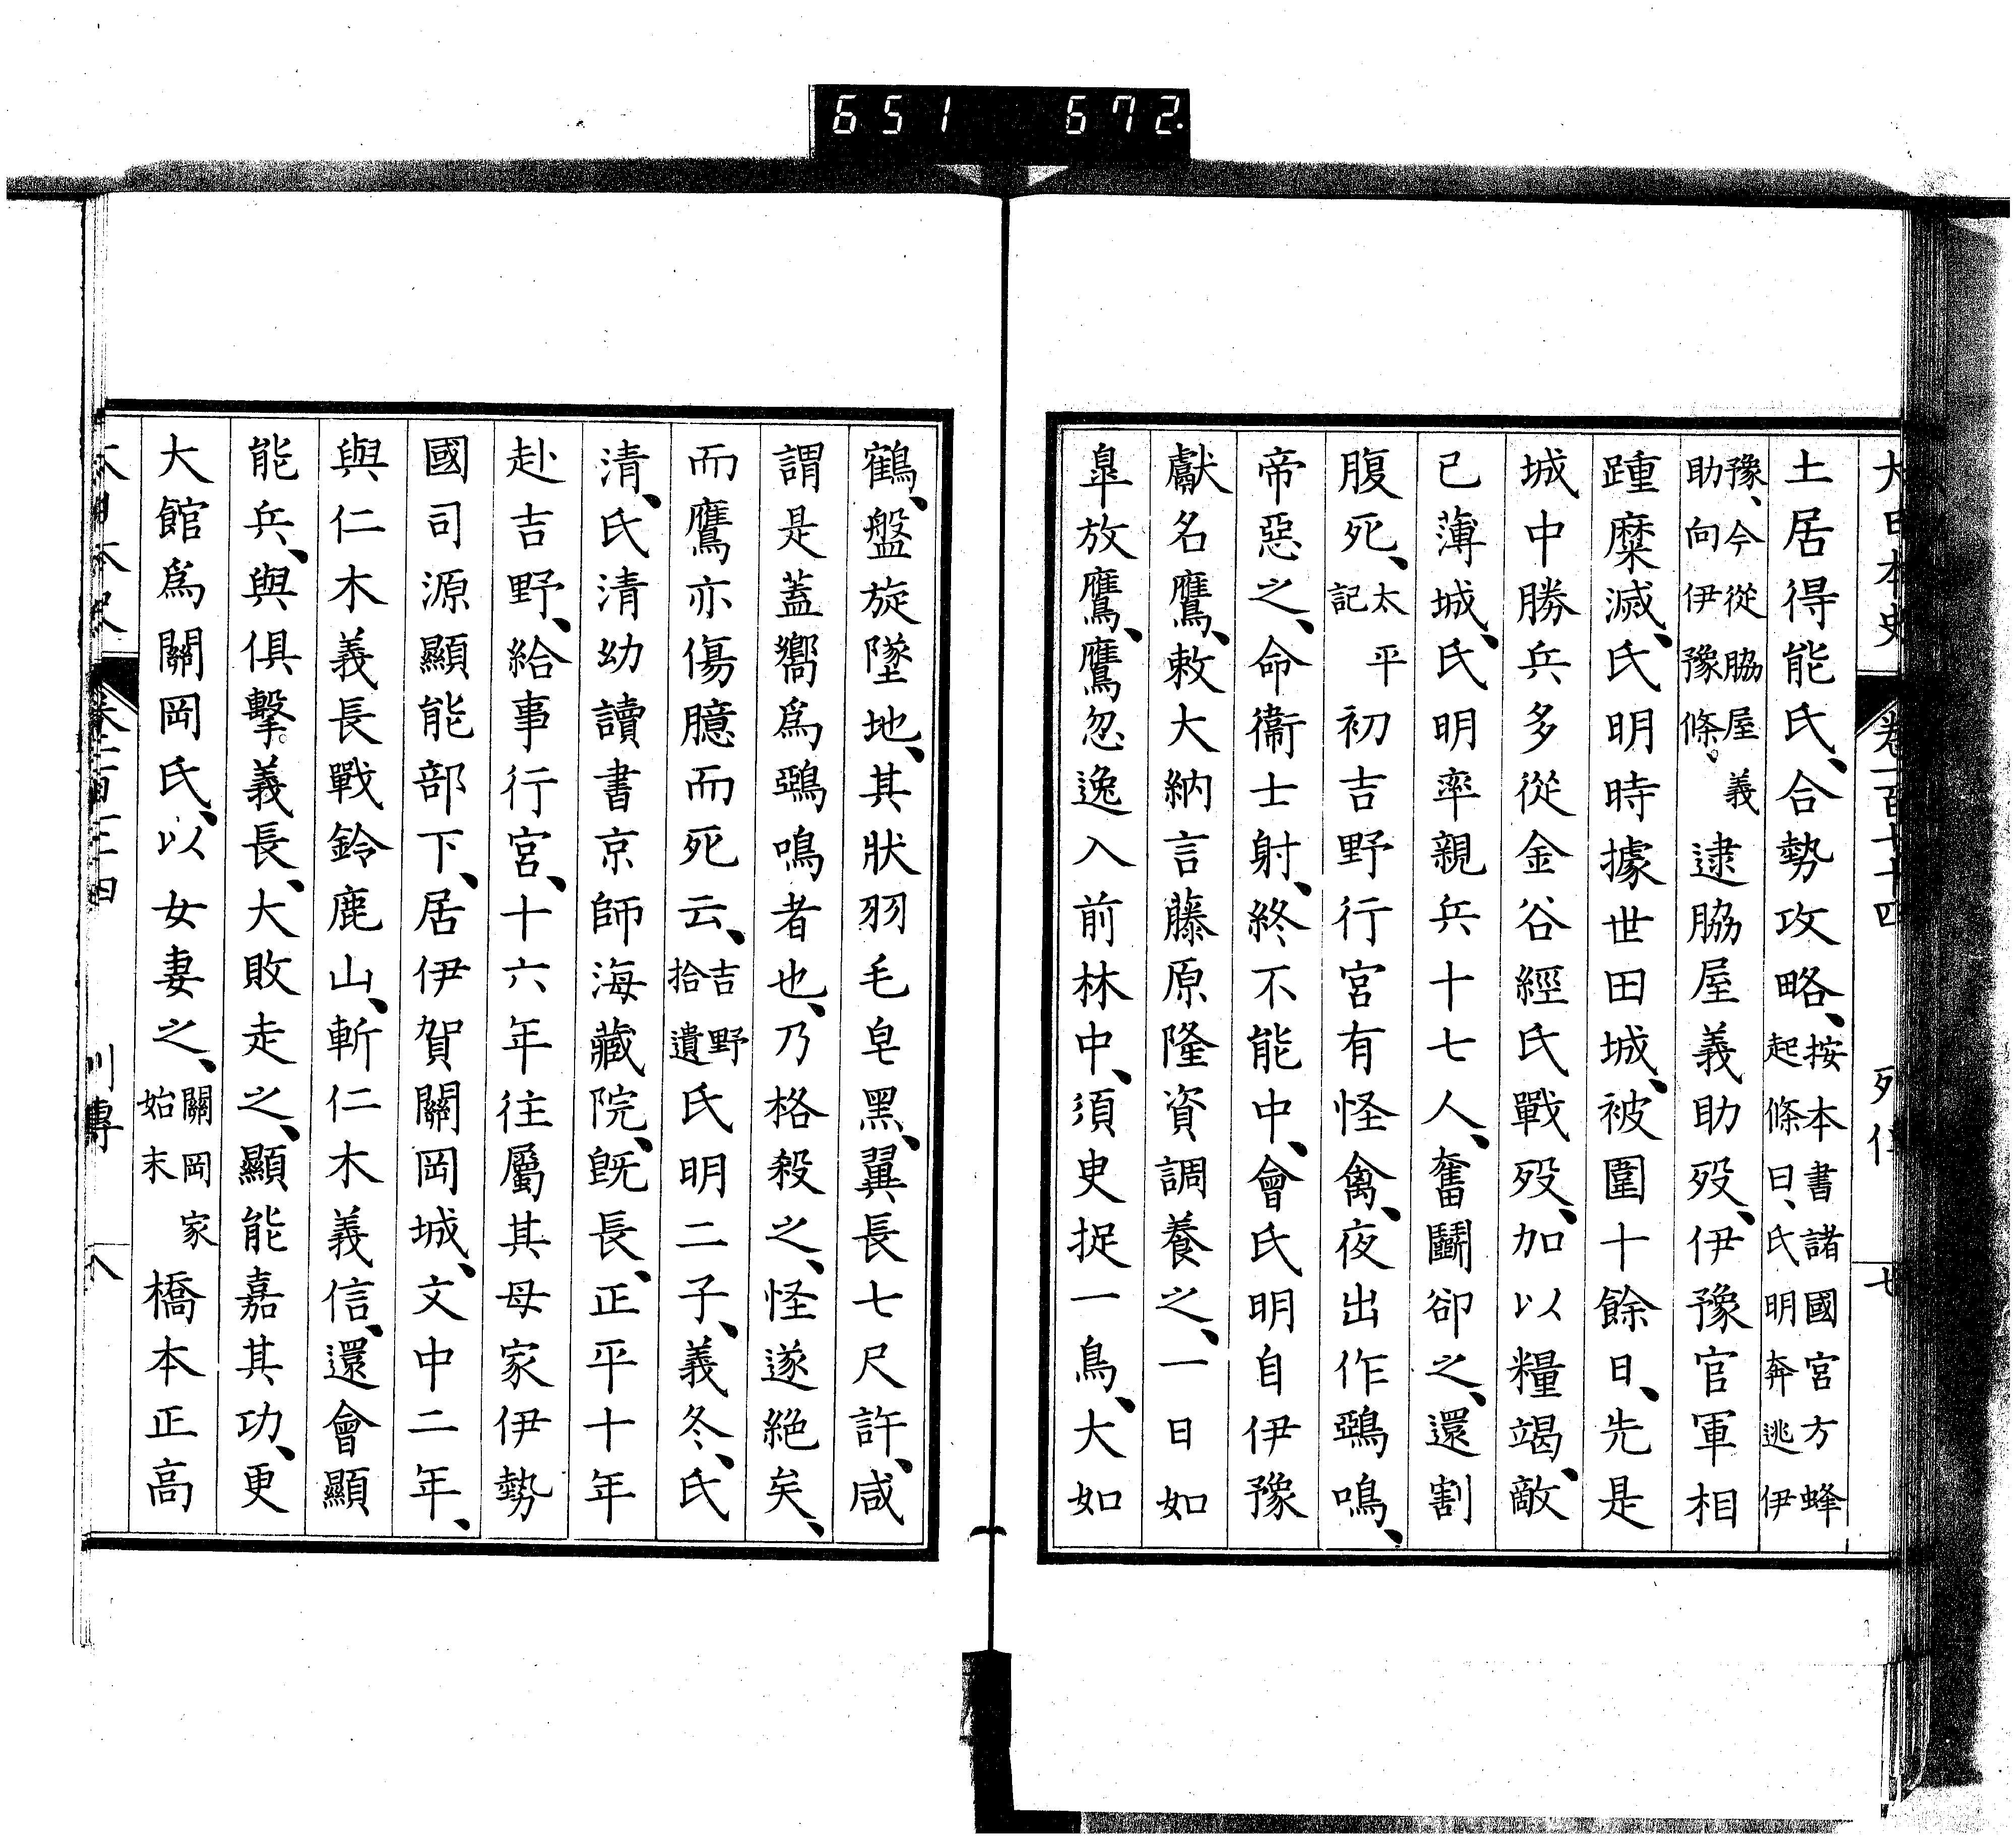 651 672.
大日本史 卷一百七十四 列傳 七
土居得能氏、合勢攻略、按本書諸國宮方蜂起條曰、氏明奔逃伊
豫、今從脇屋義助向伊豫條。逮脇屋義助歿、伊豫官軍相
踵糜滅、氏明時據世田城、被圍十餘日、先是
城中勝兵多從金谷經氏戰歿、加以糧竭、敵
已薄城、氏明率親兵十七人、奮鬪卻之、還割
腹死、太平記初吉野行宮有怪禽、夜出作鵶鳴、
帝惡之、命衞士射、終不能中、會氏明自伊豫
獻名鷹、敕大納言藤原隆資調養之、一日如
皐放鷹、鷹忽逸入前林中、須吏捉一鳥、大如
鶴、盤旋墜地、其狀羽毛皂黑、翼長七尺許、咸
謂是蓋嚮爲鵶鳴者也、乃格殺之、怪遂絕矣、
而鷹亦傷臆而死云、吉野拾遺氏明二子、義冬、氏
清、氏清幼讀書京師海藏院、旣長、正平十年
赴吉野、給事行宮、十六年往屬其母家伊勢
國司源顯能部下、居伊賀關岡城、文中二年、
與仁木義長戰鈴鹿山、斬仁木義信、還會顯
能兵、與俱擊。義長、大敗走之、顯能嘉其功、更
大館爲關岡氏、以女妻之、關岡家始末橋本正高
列傳 八